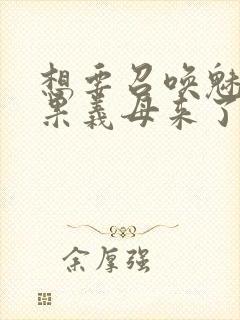 想要召唤魅
果义母来了
余厚强